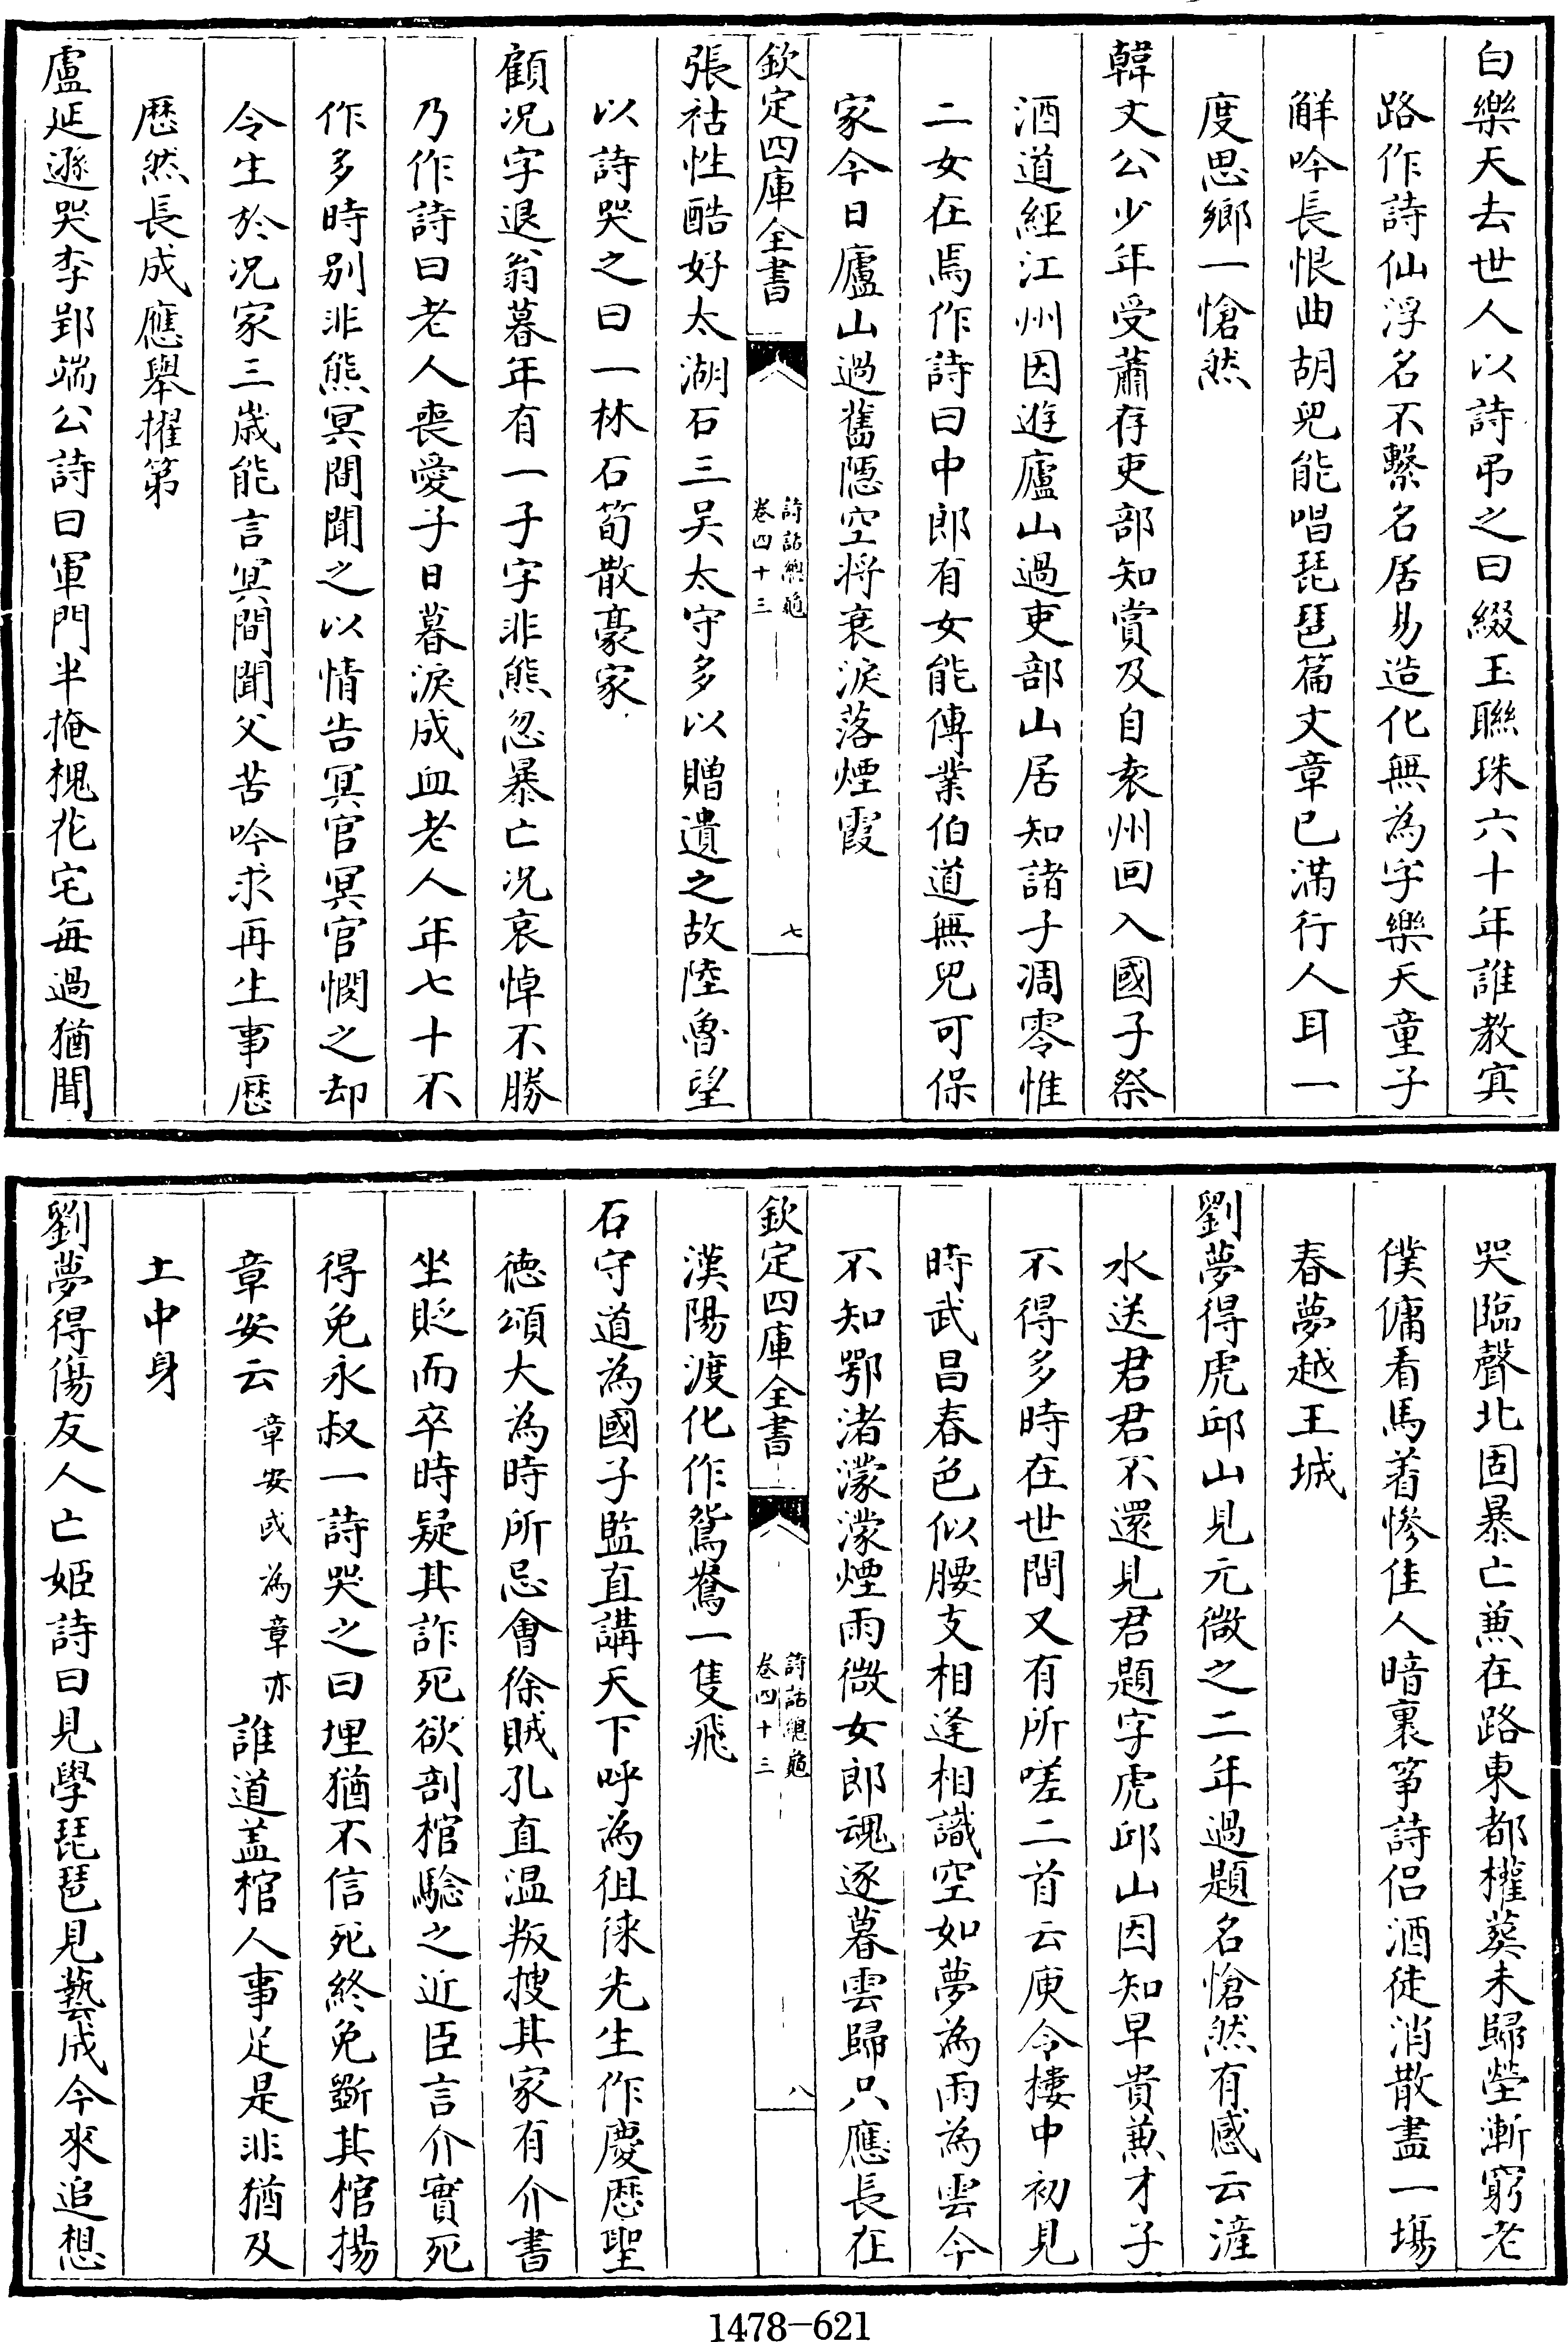 白樂天去世人以詩弔之曰綴玉聯珠六十年誰教冥
路作詩仙浮名不繫名居易造化無為字樂天童子
觧吟長恨曲胡兒能唱琵琶篇文章已滿行人耳一
度思鄉一愴然
韓文公少年受蕭存吏部知賞及自袁州回入國子祭
酒道經江州因遊廬山過吏部山居知諸子凋零惟
二女在焉作詩曰中郎有女能傳業伯道無兒可保
家今日廬山過舊隱空将衰淚落煙霞
欽定四庫全書
詩話總龜
卷四十三
七
張祜性酷好太湖石三吴太守多以贈遺之故陸魯望
以詩哭之曰一林石荀散豪家
顧况字退翁暮年有一子字非熊忽暴亡况哀悼不勝
乃作詩曰老人喪愛子日暮淚成血老人年七十不
作多時别非熊冥間聞之以情告冥官冥官憫之却
令生於况家三歲能言冥間聞父苦吟求再生事歴
歴然長成應舉擢第
盧延遜哭李郢端公詩曰軍門半掩槐花宅每過猶聞
哭臨聲北固暴亡兼在路東都權葬未歸塋漸窮老
僕傭看馬着慘佳人暗裹筝詩侣酒徒消散盡一塲
春夢越王城
劉夢得虎邱山見元微之二年過題名愴然有感云滻
水送君君不還見君題字虎邱山因知早貴兼才子
不得多時在世間又有所嗟二首云庾令樓中初見
時武昌春色似腰支相逢相識空如夢為雨為雲今
不知鄂渚濛濛煙雨微女郎魂逐暮雲歸只應長在
欽定四庫全書
詩話總龜
卷四十三
八
漢陽渡化作鴛鴦一隻飛
石守道為國子監直講天下呼為徂徠先生作慶歴聖
徳頌大為時所忌會徐賊孔直温叛搜其家有介書
坐貶而卒時疑其詐死欲剖棺驗之近臣言介實死
得免永叔一詩哭之曰埋猶不信死終免斵其棺揚
章安云章安或為章亦誰道盖棺人事足是非猶及
土中身
劉夢得傷友人亡姬詩曰見學琵琶見藝成今來追想
1478-621